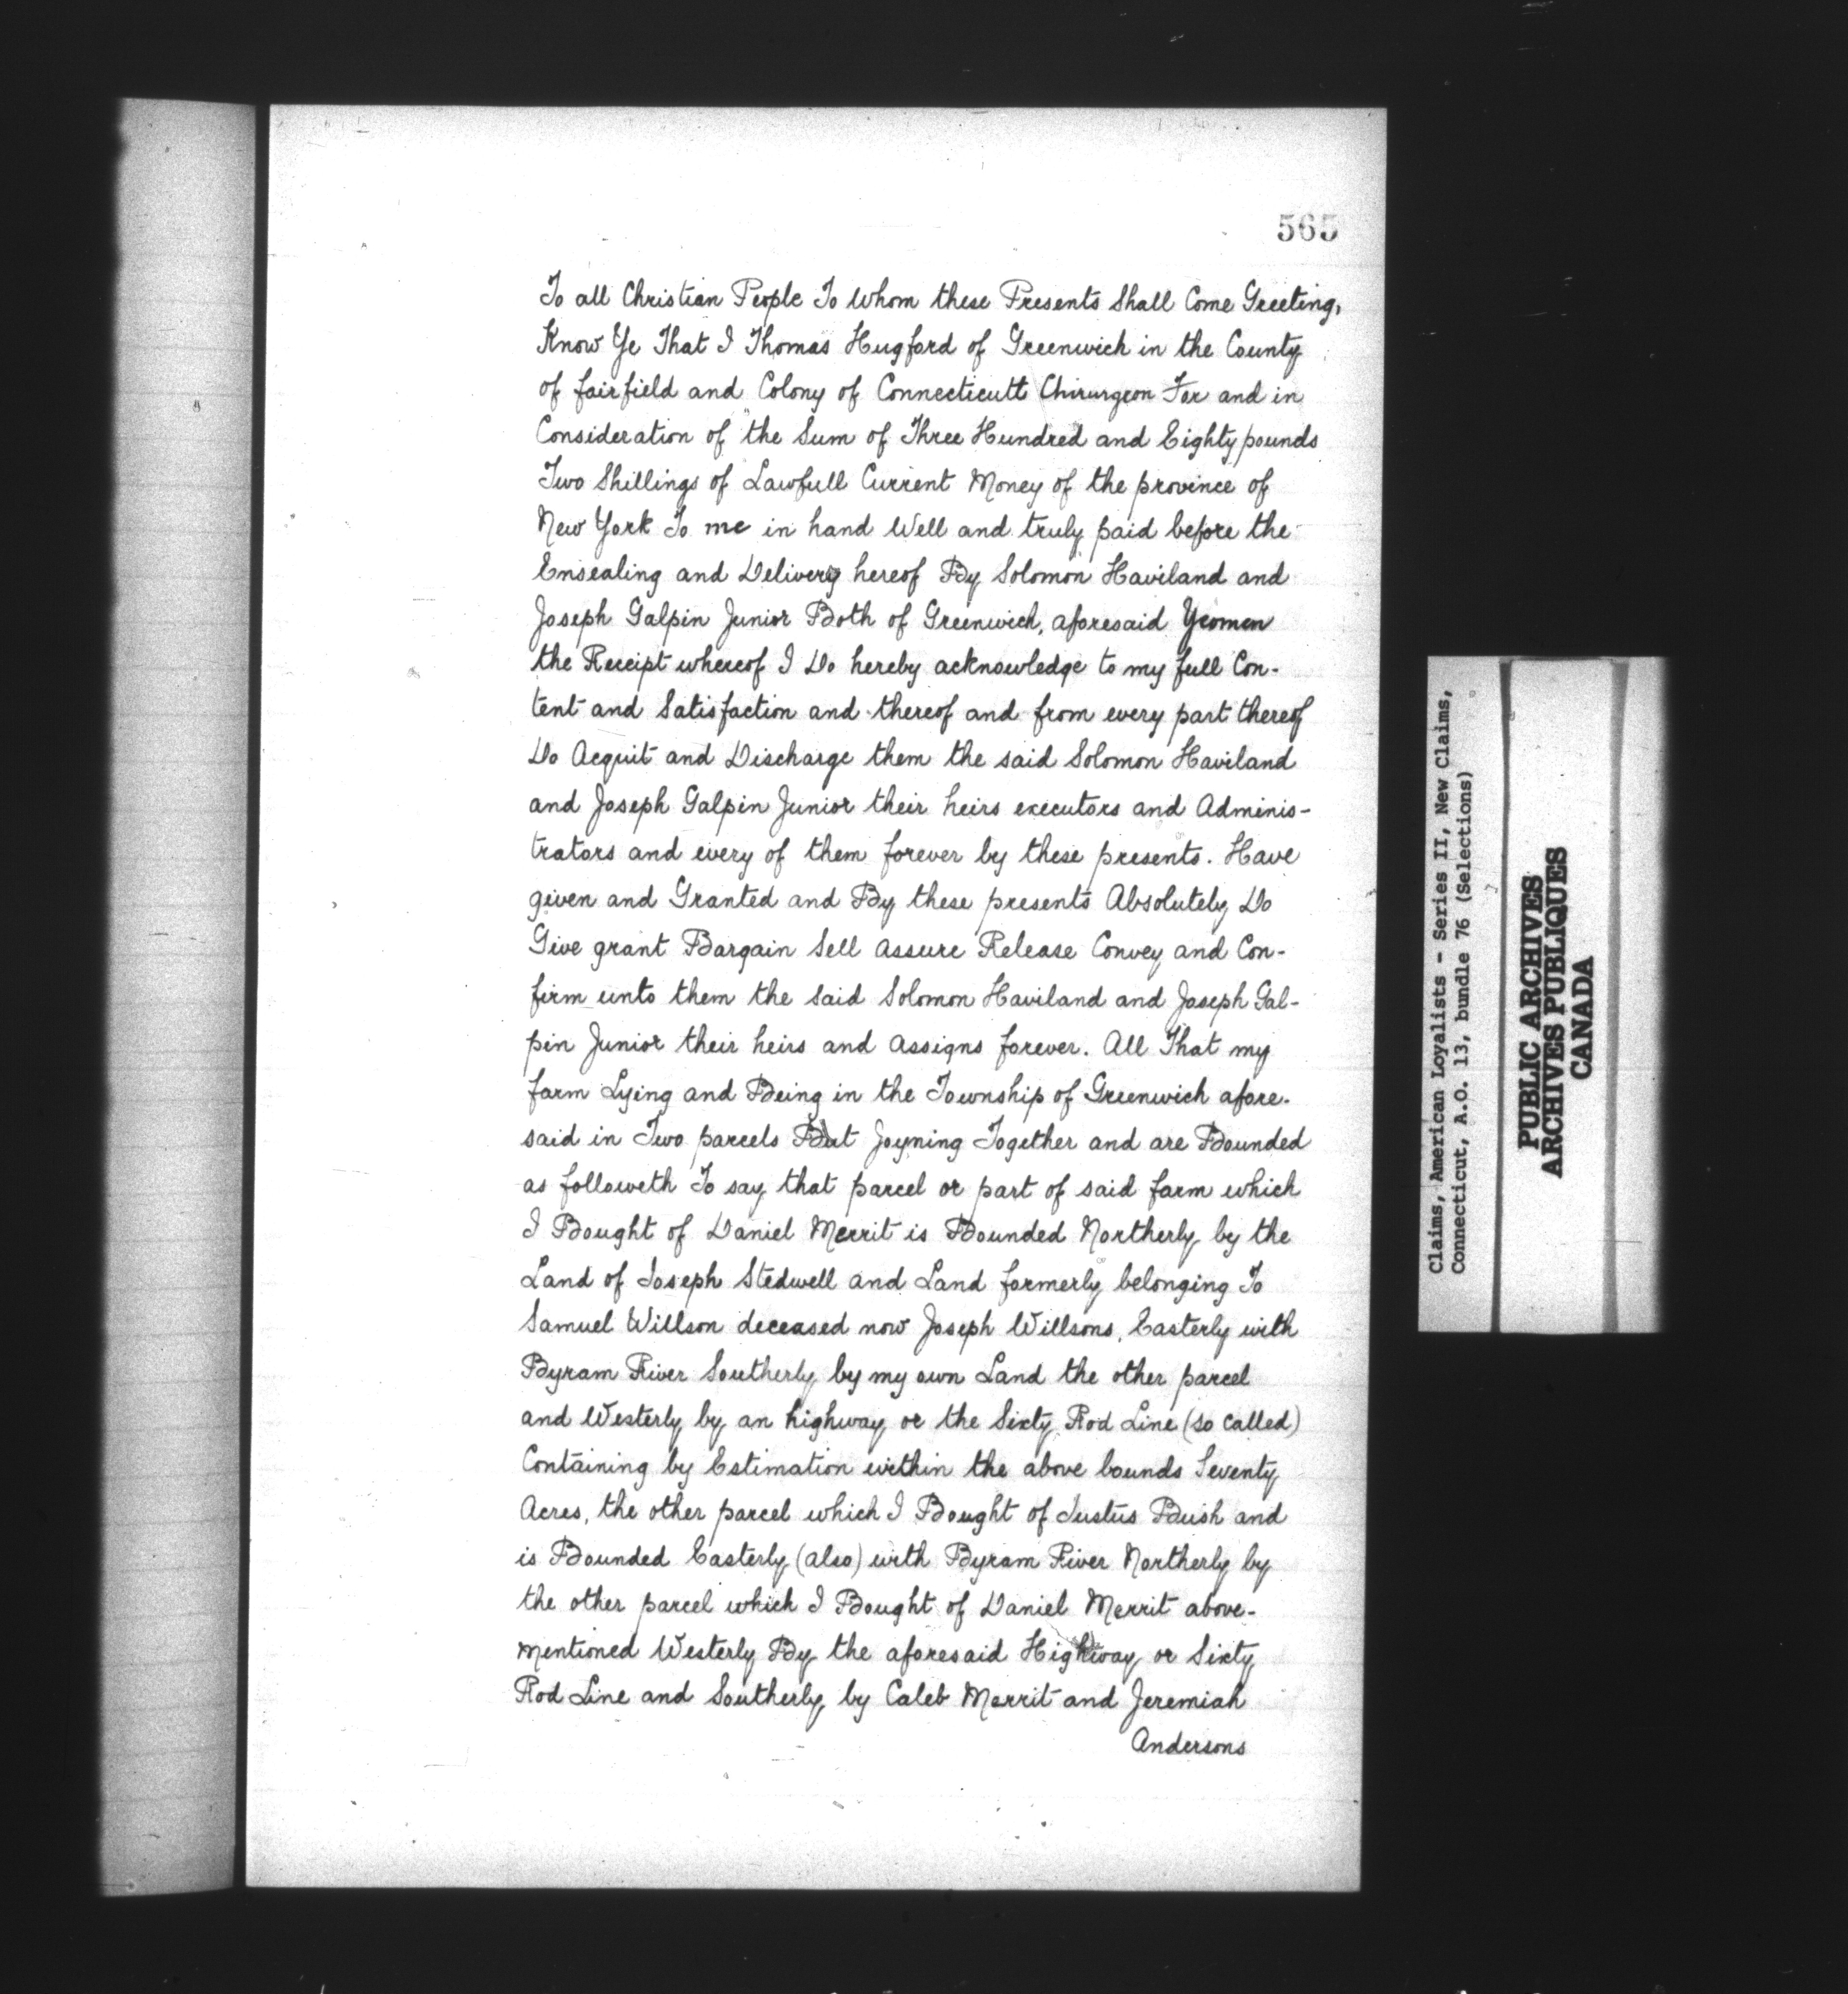 565
To all Christian People To Whom these Presents Shall Come Greeting,
Know Ye That I Thomas Hugford of Greenwich in the County
of fairfield and Colony of Connecticutt Chirurgeon For and in
Consideration of the Sum of Three Hundred and Eighty pounds
Two Shillings of Lawfull Current Money of the province of
New York To me in hand Well and truly paid before the
Ensealing and Delivery hereof By Solomon Haviland and
Joseph Galpin Junior Both of Greenwich, aforesaid Yeomen
the Receipt whereof I Do hereby acknowledge to my full Con-
tent and Satisfaction and thereof and from every part thereof
Do Acquit and Discharge them the said Solomon Haviland
and Joseph Galpin Junior their heirs executors and Adminis-
trators and every of them forever by these presents. Have
given and Granted and By these presents Absolutely Do
Give grant Bargain Sell Assure Release Convey and Con-
firm unto them the Said Solomon Haviland and Joseph Gal-
pin Junior their heirs and Assigns forever. All That my
farm Lying and Being in the Township of Greenwich afore-
said in Two parcels But Joyning Together and are Bounded
as followeth To say that parcel or part of said farm which
I Bought of Daniel Merrit is Bounded Northerly by the
Land of Joseph Stedwell and Land formerly belonging To
Samuel Willson deceased now Joseph Willsons, Easterly with
Byram River Southerly by my own Land the other parcel
and Westerly by an highway or the Sixty Rod Line (so called)
Containing by Estimation within the above bounds Seventy
Acres, the other parcel which I Bought of Justus Bush and
is Bounded Easterly (also) with Byram River Northerly by
the other parcel which I Bought of Daniel Merrit above-
mentioned Westerly By the aforesaid Highway or Sixty
Rod Line and Southerly by Caleb Merrit and Jeremiah
Andersons
Claims, American Loyalists - Series II, New Claims,
Connecticut, A.O. 13, bundle 76 (Selections)
PUBLIC ARCHIVES
ARCHIVES PUBLIQUES
CANADA